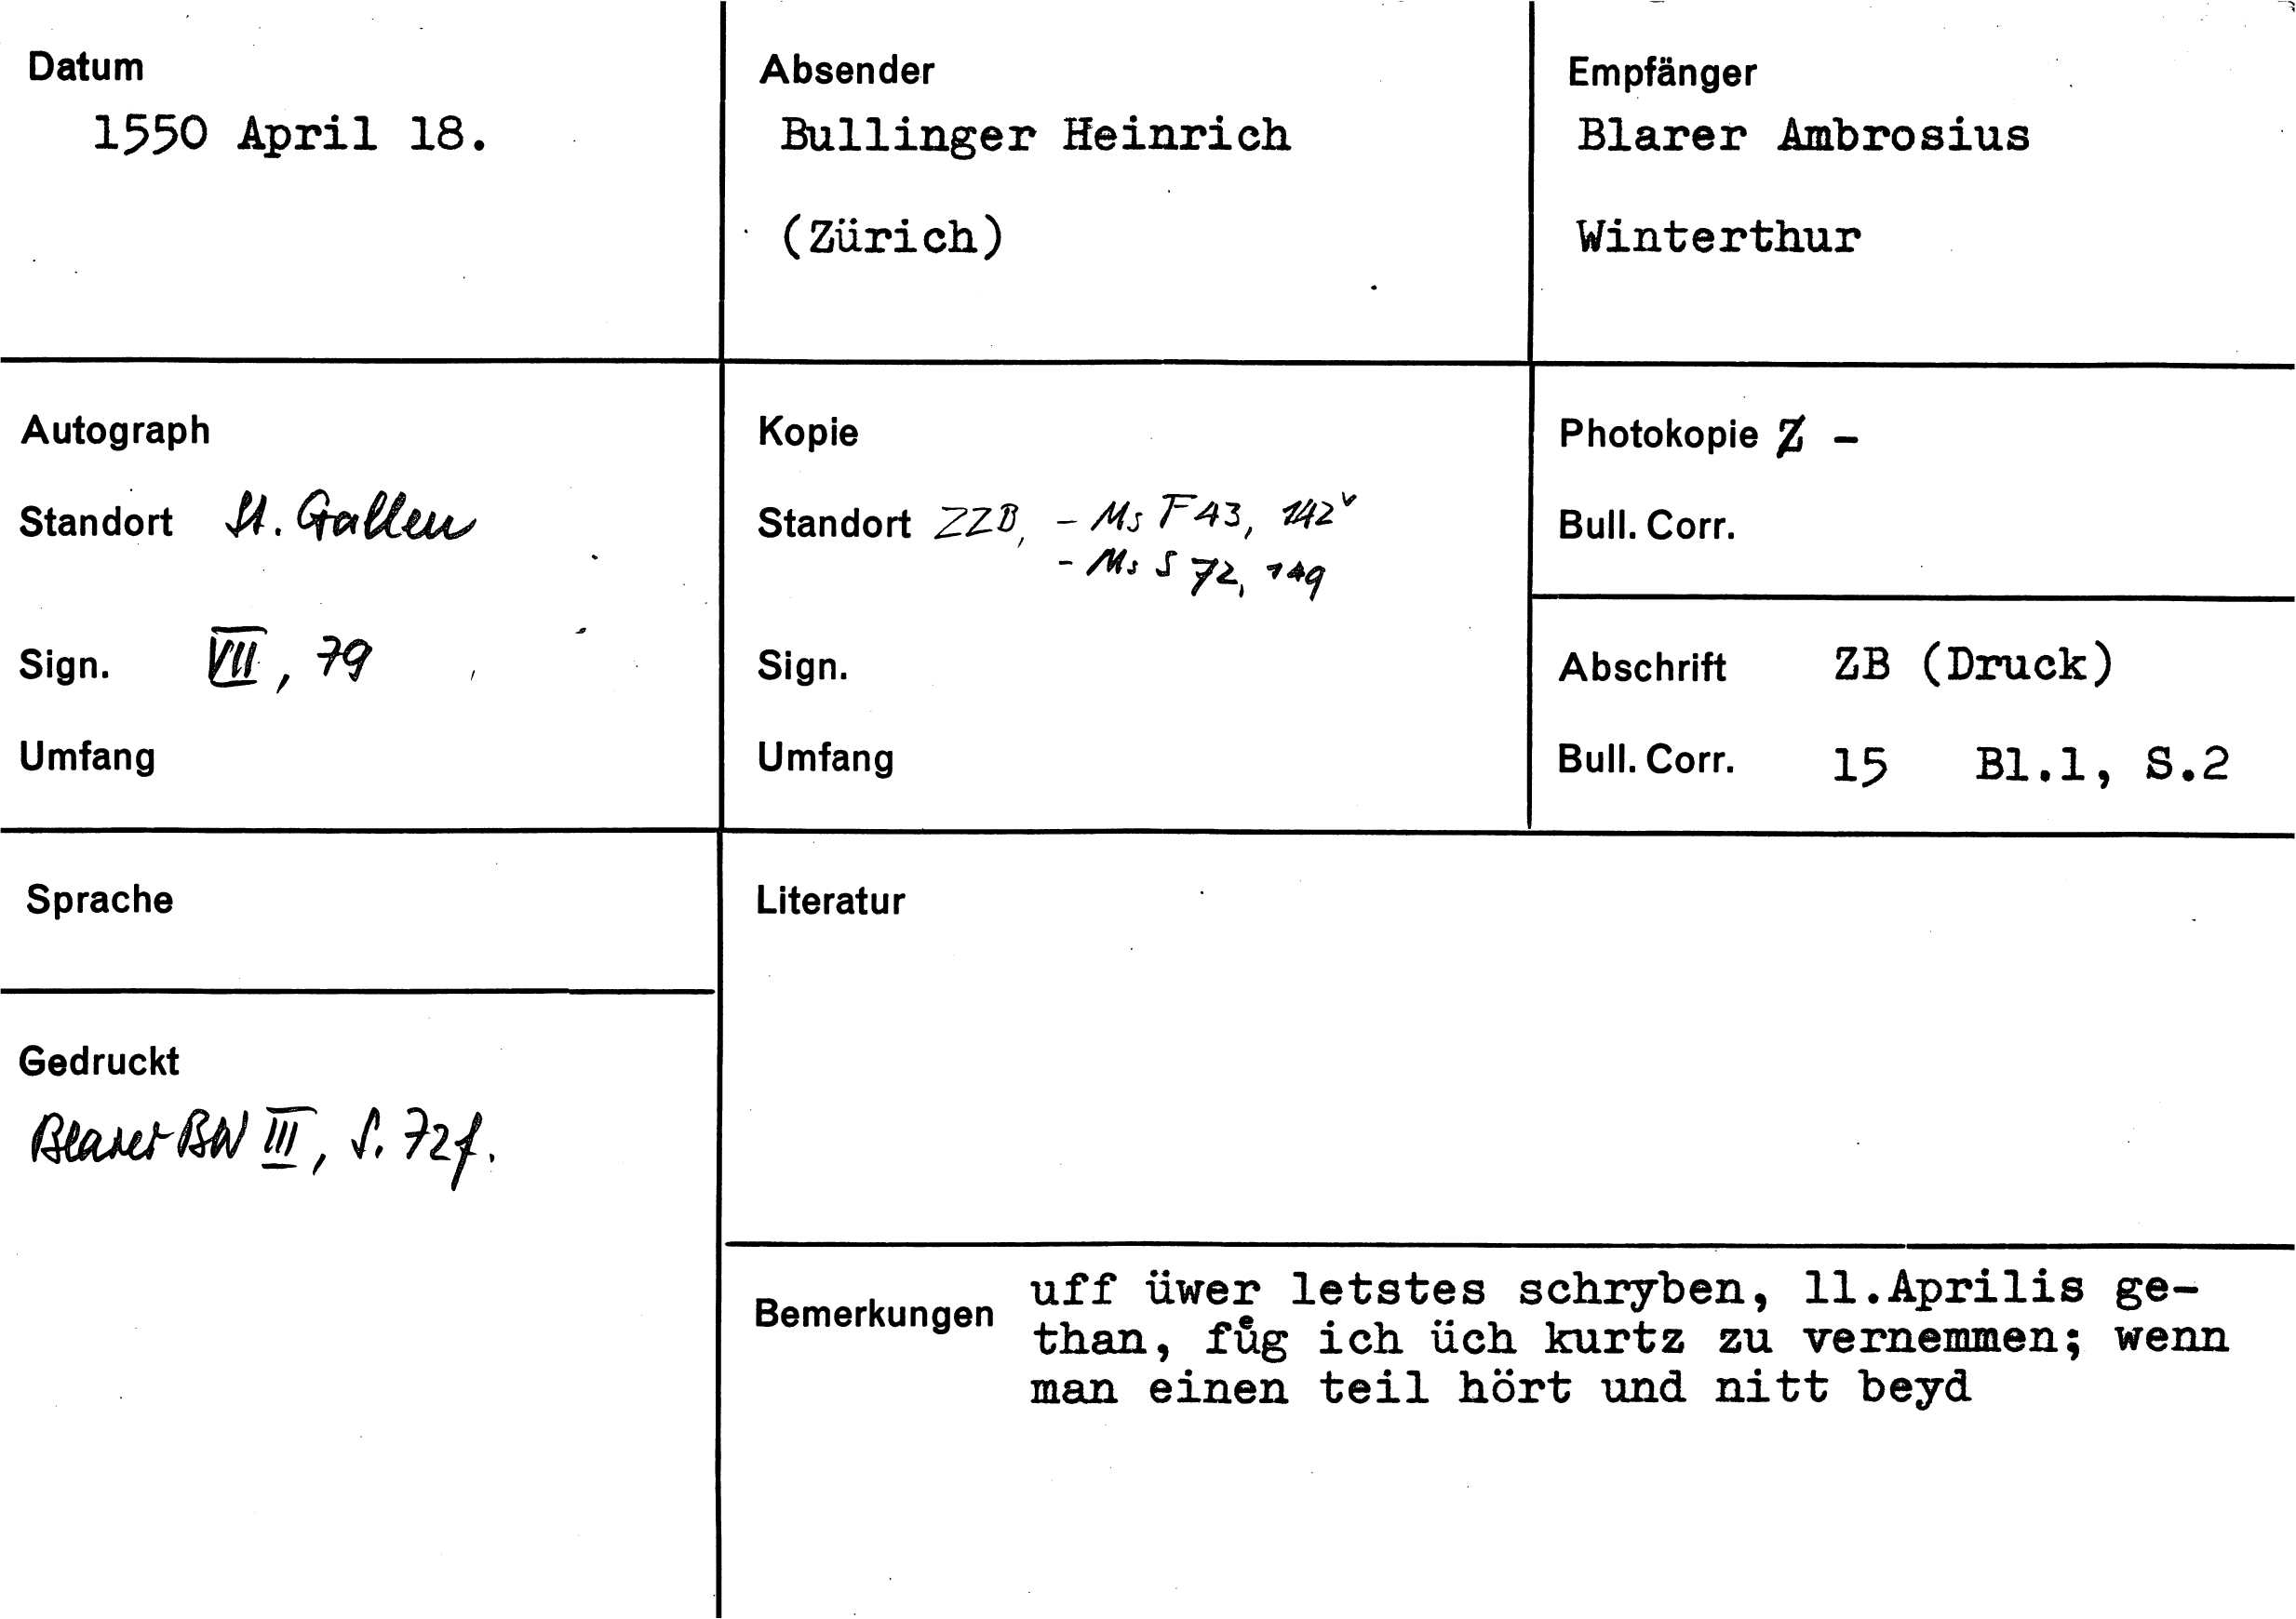 Datum
1550 April 18.
Absender
Bullinger Heinrich
(Zürich)
Empfänger
Blarer Ambrosius
Winterthur
Autograph
Standort St. Gallen
Sign. VII, 79
Umfang
Kopie
Standort ZZB, - Ms F 43, 142v
- Ms S 72, 149
Sign.
Umfang
Photokopie Z -
Bull. Corr.
Abschrift ZB (Druck)
Bull. Corr. 15 Bl.1, S.2
Sprache
Gedruckt
Blarer BW III, S. 72f.
Literatur
Bemerkungen uff üwer letstes schryben, 11.Aprilis ge-
than, fůg ich üch kurtz zu vernemmen; wenn
man einen teil hört und nitt beyd